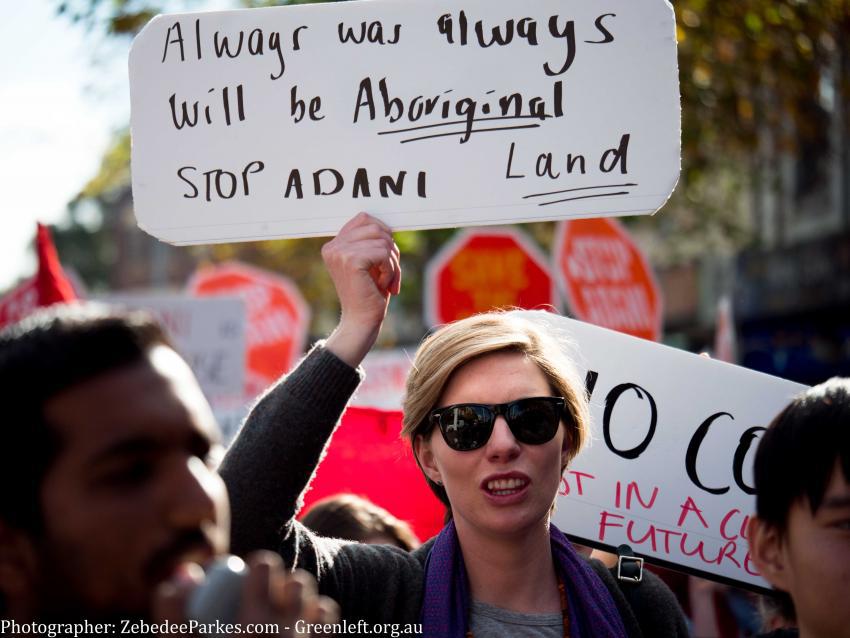 Always was always
will be Aboriginal
STOP ADANI Land
SAVE
STOP
ADANI
NO CO
IN A
FUTURE
Photographer: ZebedeeParkes.com - Greenleft.org.au